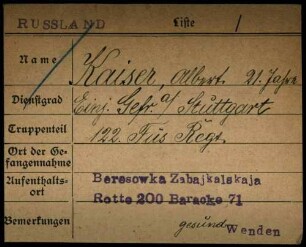 RUSSLAND Liste /
Name Kaiser, Albert. 21. Jahre
Dienstgrad Einj. Gefr. a/ Stuttgart
Truppenteil 122. Füs Regt.
Ort der Ge-
fangennahme
Aufenthalts-
ort
Beresowka Zabajkalskaja
Rotte 200 Baracke 71
Bemerkungen gesund Wenden